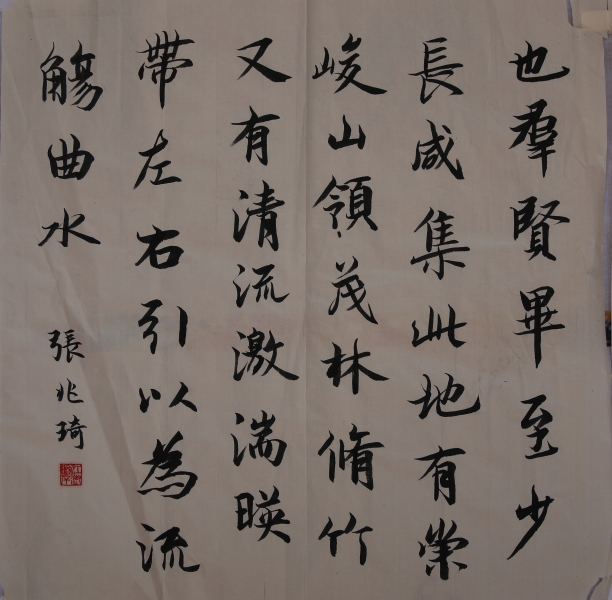 也羣賢畢至少
長咸集此地有崇
峻山領茂林脩竹
又有清流激湍暎
帶左右引以為流
觴曲水
張兆琦